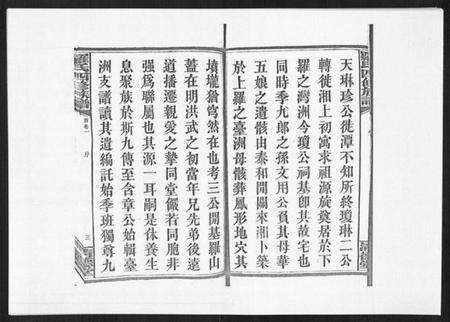 天琳珍公徙潭不知所終瓊琳二公
轉徙湘上初寓求祖源旋奠居於下
羅之灣洲今瓊公祠基卽其故宅也
同時季九郎之孫文用公負其母華
五娘之遺骸由泰和開關來湘卜築
於上羅之臺洲母骸葬鳳形地穴其
墳壠猶穹然在也考三公開基羅山
蓋在明洪武之初當年兄先弟後遠
道播遷親愛之摯同堂儼若同胞非
强爲聯屬也其源一耳嗣是休養生
息聚族於斯九傳至含章公始輯臺
洲支譜讀其遺編託始季班獨尊九
羅氏四修族譜
序
三